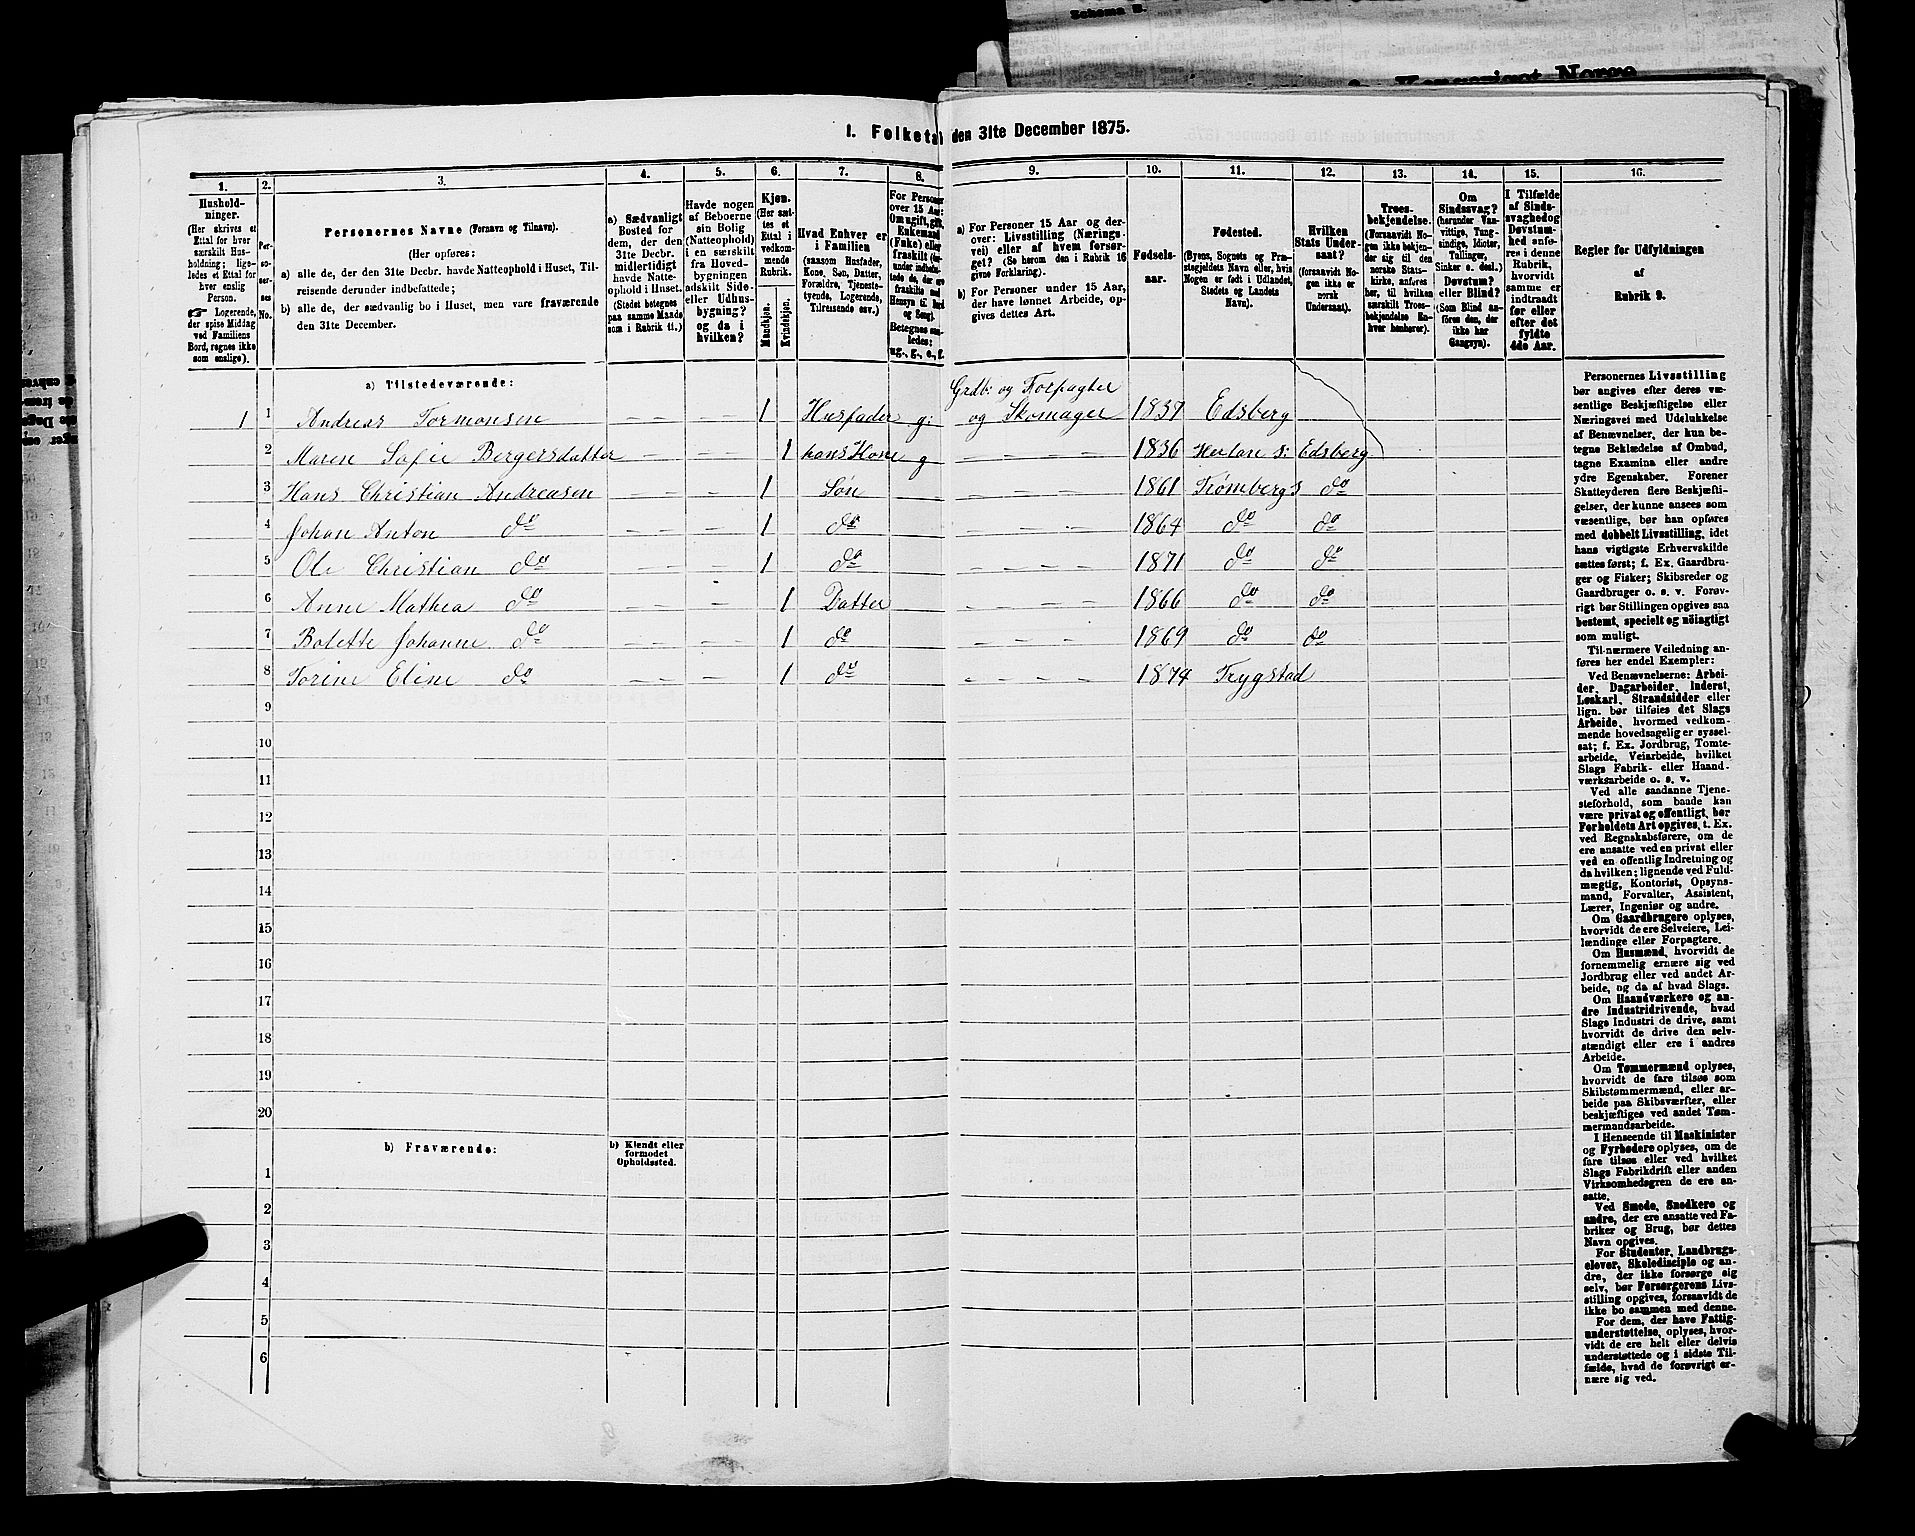 Schema B.
Kongeriget Norge
1. Folketæ den 31te December 1875.
1. 2. 3. 4. 5. 6. 7. 8. 9. 10. 11. 12. 13. 14. 15. 16.
Husholdninger.
(Her skrives et
Ettal for hver
særskilt Husholdning;
ligeledes et Ettal for
hver enslig
Person.
☞ Logerende,
der spise Middag
ved Familiens
Bord, regnes ikke
som enslige).
Personernes No.
Personernes Navne (Fornavn og Tilnavn).
(Her opføres:
a) alle de, der den 31te Decbr. havde Natteophold i Huset, Tilreisende derunder indbefattede;
b) alle de, der sædvanlig bo i Huset, men vare fraværende
den 31te December.
a) Sædvanligt
Bosted for
dem, der den
31te Decbr.
midlertidigt
havde Natteophold i Huset.
(Stedet betegnes
paa samme Maade
som i Rubrik 11.)
Havde nogen
af Beboerne
sin Bolig
(Natteophold)
i en særskilt
fra Hovedbygningen
adskilt Side-
eller Udhusbygning?
og da i
hvilken?
Kjøn.
(Her sættes et
Ettal i
vedkommende
Rubrik.
Mandkjøn.
Kvindekjøn.
Hvad Enhver er
i Familien
(saasom Husfader,
Kone, Søn, Datter,
Forældre, Tjenestetyende, Logerende,
Tilreisende osv.)
For Personer
over 15 Aar:
Om ugift, gift,
Enkemand
(Enke) eller
fraskilt
Betegnes saaledes:
ug., g., e., f.
a) For Personer 15 Aar og derover: Livsstilling (Næringsvei) eller af hvem forsørget? (Se herom den i Rubrik 16
givne Forklaring).
b) For Personer under 15 Aar,
der have lønnet Arbeide, opgives dettes Art.
Fødselsaar.
Fødested.
(Byens, Sognets og Præstegjeldets Navn eller, hvis
Nogen er født i Udlandet,
Stedets og Landets
Navn).
Hvilken
Stats Undersaat?
(forsaavidt Nogen ikke er
norsk
Undersaat).
Troesbekjendelse.
(Forsaavidt Nogen ikke bekjender sig til den
norske Statskirke, anføres
her, til hvilken
særskilt Troesbekjendelse Enhver henhører).
Om
Sindssvag?
(herunder Vanvittige, Tungsindige, Idioter,
Tullinger,
Sinker o. desl.)
Døvstum?
eller Blind?
(Som Blind anføres den, der
ikke har
Gangsyn).
I Tilfælde
af Sindssvaghed og
Døvstumhed anføres i denne
Rubrik,
hvorvidt
samme er
indtraadt
før eller
efter det
fyldte
4de Aar.
Regler for Udfyldningen
af
Rubrik 9.
a) Tilstedeværende:
1 1 Andreas Tormonsen – – – – 1 Husfader g: Grdb: og Forpagter og Skomager 1837 Edsberg
2 Maren Sofie Bergersdatter – – – – 1 hans Kone g – – – – 1836 Herlan s: Edsberg
3 Hans Christian Andreasen – – – – 1 Søn – – – – 1861 Trømbergs do
4 Johan Anton do – – – – 1 do – – – – 1864 do do
5 Ole Christian do – – – – 1 do – – – – 1871 do do
6 Anne Mathea do – – – – 1 Datter – – – – 1866 do do
7 Bolette Johanne do – – – – 1 do – – – – 1869 do do
8 Torine Eline do – – – – 1 do – – – – 1874 Trygstad
9
10
11
12
13
14
15
16
17
18
19
20
b) Fraværende:
b) Kjendt eller
formodet
Opholdssted.
1
2
3
4
5
6
Personernes Livsstilling
bør angives efter deres væsentlige Beskjæftigelse eller
Næringsvei med Udelukkelse
af Benævnelser, der kun betegne Beklædelse af Ombud,
tagne Examina eller andre
ydre Egenskaber. Forener
Skatteyderen flere Beskjæftigelser, der kunne ansees som
væsentlige, bør han opføres
med dobbelt Livsstilling, idet
hans vigtigste Erhvervskilde
sættes først; f. Ex. Gaardbruger og Fisker; Skibsreder og
Gaardbruger o. s. v. Forøvrigt bør Stillingen opgives saa
bestemt, specielt og nöiagtigt
som muligt.
Til nærmere Veiledning anføres her endel Exempler:
Ved Benævnelserne: Arbeider, Dagarbeider, Inderst,
Løskarl, Strandsidder eller
lign. bør tilføies det Slags
Arbeide, hvormed vedkommende hovedsagelig er sysselsat; f. Ex. Jordbrug, Tomtearbeide, Veiarbeide, hvilket
Slags Fabrik- eller Haandværksarbeide o. s. v.
Ved alle saadanne Tjenesteforhold, som baade kan
være privat og offentligt, bør
Forholdets Art opgives, t. Ex.
ved Regnskabsførere, om de
ere ansatte ved en privat eller
ved en offentlig Indretning og
da hvilken; lignende ved Fuldmægtig, Kontorist, Opsynsmand, Forvalter, Assistent,
Lærer, Ingeniør og andre.
Om Gaardbrugere oplyses,
hvorvidt de ere Selveiere, Leilændinge eller Forpagtere.
Om Husmænd, hvorvidt de
fornemmelig ernære sig ved
Jordbrug eller ved andet Arbeide, og da af hvad Slags.
Om Haandværkere og andre Industridrivende, hvad
Slags Industri de drive, samt
hvorvidt de drive den selvstændigt eller ere i andres
Arbeide.
Om Tømmermænd oplyses,
hvorvidt de fare tilsøs som
Skibstømmermænd, eller arbeide paa Skibsværfter, eller
beskjæftiges ved andet Tømmermandsarbeide.
I Henseende til Maskinister
og Fyrbødere oplyses, om de
fare tilsøs eller ved hvilket
Slags Fabrikdrift eller anden
Virksomhedsgren de ere ansatte.
Ved Smede, Snedkere og
andre, der ere ansatte ved Fabriker og Brug, bør dettes
Navn opgives.
For Studenter, Landbrugselever, Skoledisciple og andre, der ikke forsørge sig
selv, bør Forsørgerens Livsstilling opgives, forsaavidt de
ikke bo sammen med denne.
For dem, der have Fattigunderstøttelse, oplyses, hvorvidt de ere helt eller delvis
understøttede og i sidste Tilfælde, hvad de forøvrigt ernære sig ved.